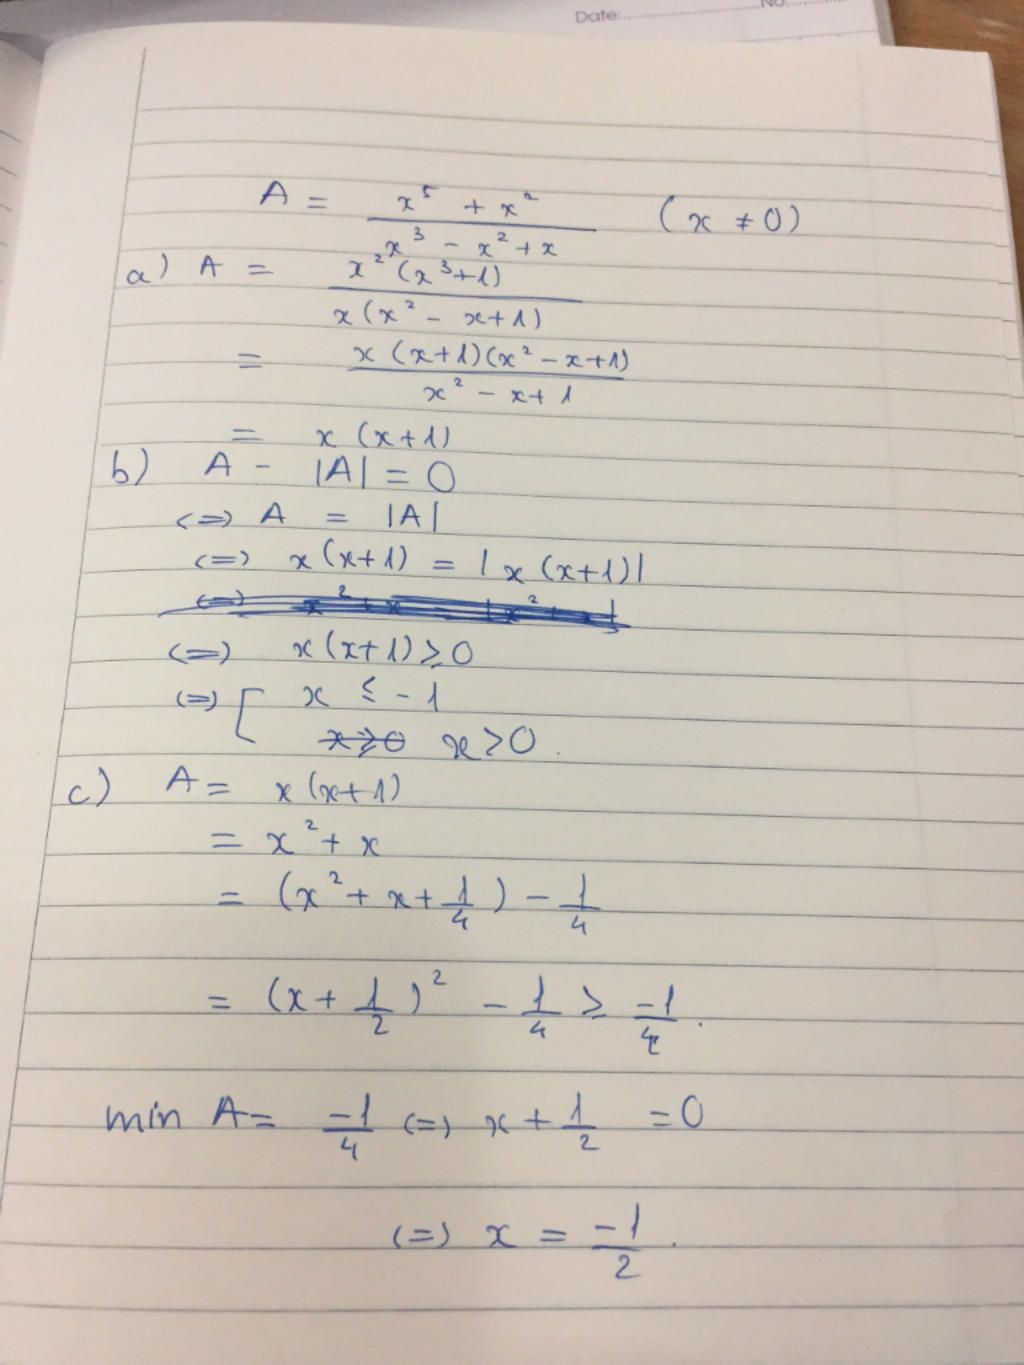 Date: No.
A = x⁵ + x² / x³ - x² + x (x ≠ 0)
a) A = x²(x³+1) / x(x² - x+1)
= x(x+1)(x² - x+1) / x² - x+1
= x(x+1)
b) A - |A| = 0
<=> A = |A|
<=> x(x+1) = |x(x+1)|
<=> x(x+1) ≥ 0
<=> [ x ≤ -1
x≥0 x>0.
c) A = x(x+1)
= x² + x
= (x² + x + 1/4) - 1/4
= (x + 1/2)² - 1/4 ≥ -1/4.
min A = -1/4 <=> x + 1/2 = 0
<=> x = -1/2.